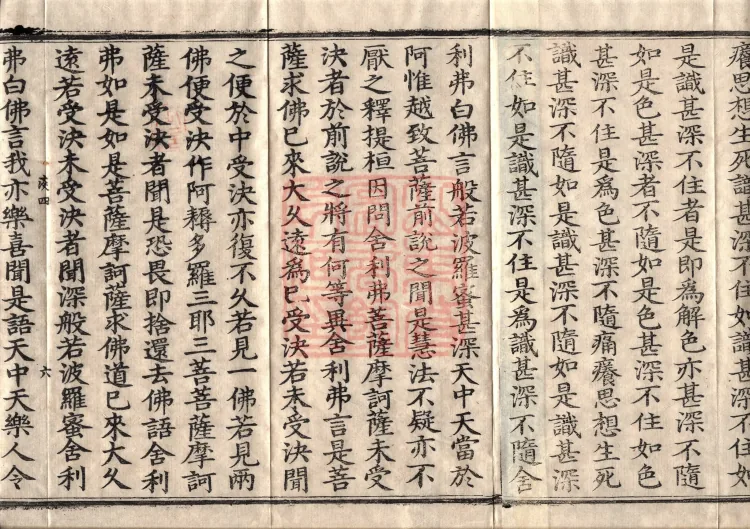 癢思想生死識甚深不住如識甚深不住如
是識甚深不住者是即為解色亦甚深不隨
如是色甚深者不隨如是色甚深不住如色
甚深不住是為色甚深不隨痛癢思想生死
識甚深不隨如是識甚深不隨如是識甚深
不住如是識甚深不住是為識甚深不隨舍
利弗白佛言般若波羅蜜甚深天中天當於
阿惟越致菩薩前說之聞是慧法不疑亦不
厭之釋提桓因問舍利弗菩薩摩訶薩未受
決者於前說之將有何等異舍利弗言是菩
薩求佛已來大久遠為已受決若未受決聞
之便於中受決亦復不久若見一佛若見兩
佛便受決作阿耨多羅三耶三菩菩薩摩訶
薩未受決者聞是恐畏即捨還去佛語舍利
弗如是如是菩薩摩訶薩求佛道已來大久
遠若受決未受決者聞深般若波羅蜜舍利
四 六
弗白佛言我亦樂喜聞是語天中天樂人令